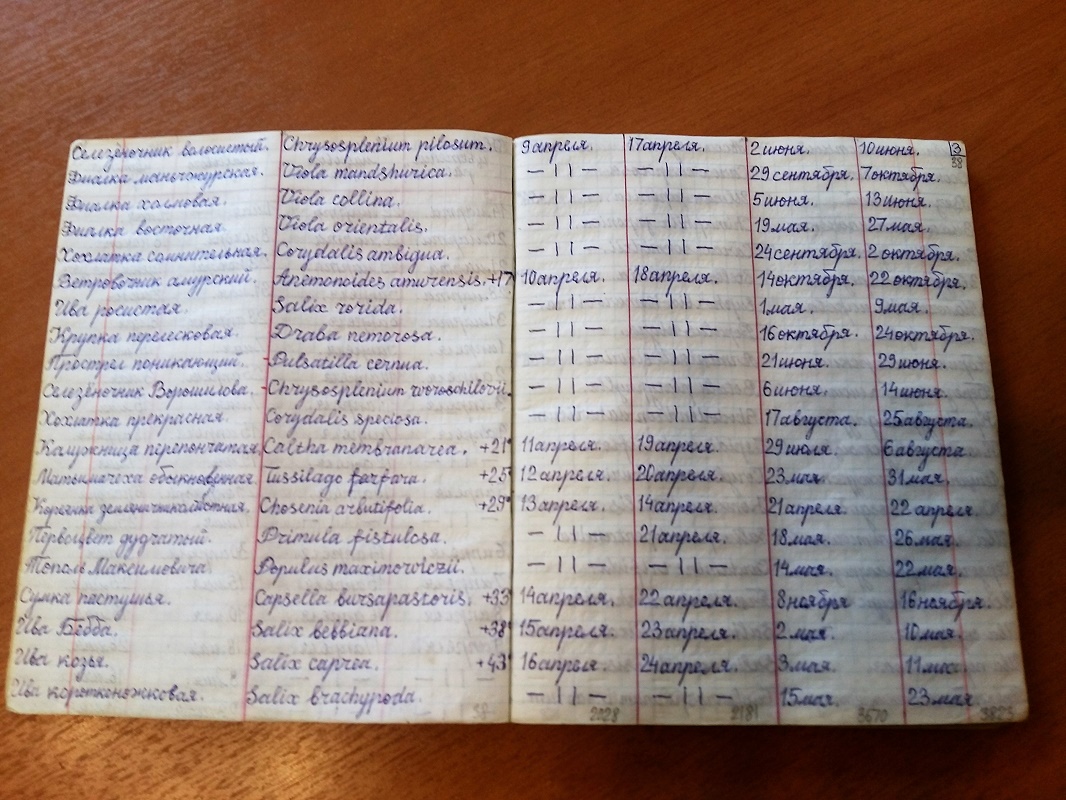 Селезёночник волосистый. Chrysosplenium pilosum. 9 апреля. 17 апреля. 2 июня. 10 июня. 3
Фиалка маньчжурская. Viola mandshurica. — 11 — — 11 — 29 сентября. 7 октября. 38
Фиалка холмовая. Viola collina. — 11 — — 11 — 5 июня. 13 июня.
Фиалка восточная. Viola orientalis. — 11 — — 11 — 19 мая. 27 мая.
Хохлатка сомнительная. Corydalis ambigua. — 11 — — 11 — 24 сентября. 2 октября.
Ветровочник амурский. Anemonoides amurensis. +17 10 апреля. 18 апреля. 14 октября. 22 октября.
Ива росистая. Salix rorida. — 11 — — 11 — 1 мая. 9 мая.
Крупка перелесковая. Draba nemorosa. — 11 — — 11 — 16 октября. 24 октября.
Прострел поникающий. Pulsatilla cernua. — 11 — — 11 — 21 июня. 29 июня.
Селезёночник Ворошилова. Chrysosplenium woroschilovii. — 11 — — 11 — 6 июня. 14 июня.
Хохлатка прекрасная. Corydalis speciosa. — 11 — — 11 — 17 августа. 25 августа.
Калужница перепончатая. Caltha membranacea. +21° 11 апреля. 19 апреля. 29 июля. 6 августа
Матьимачеха обыкновенная. Tussilago farfara. +25° 12 апреля. 20 апреля. 23 мая. 31 мая.
Корянка земляничниколистная. Chosenia arbutifolia. +29° 13 апреля. 14 апреля. 21 апреля. 22 апреля.
Первоцвет дудчатый. Primula fistulosa. — 11 — 21 апреля. 18 мая. 26 мая.
Тополь Максимовича Populus maximowiczii. — 11 — — 11 — 14 мая. 22 мая.
Сумка пастушья. Capsella bursapastoris. +33° 14 апреля. 22 апреля. 8 ноября 16 ноября.
Ива Бебба. Salix bebbiana. +38° 15 апреля. 23 апреля. 2 мая. 10 мая.
Ива козья. Salix caprea. +43° 16 апреля. 24 апреля. 3 мая. 11 мая.
Ива коротконожковая. Salix brachypoda. — 11 — — 11 — 15 мая. 23 мая.
2028 2181 3670 3823